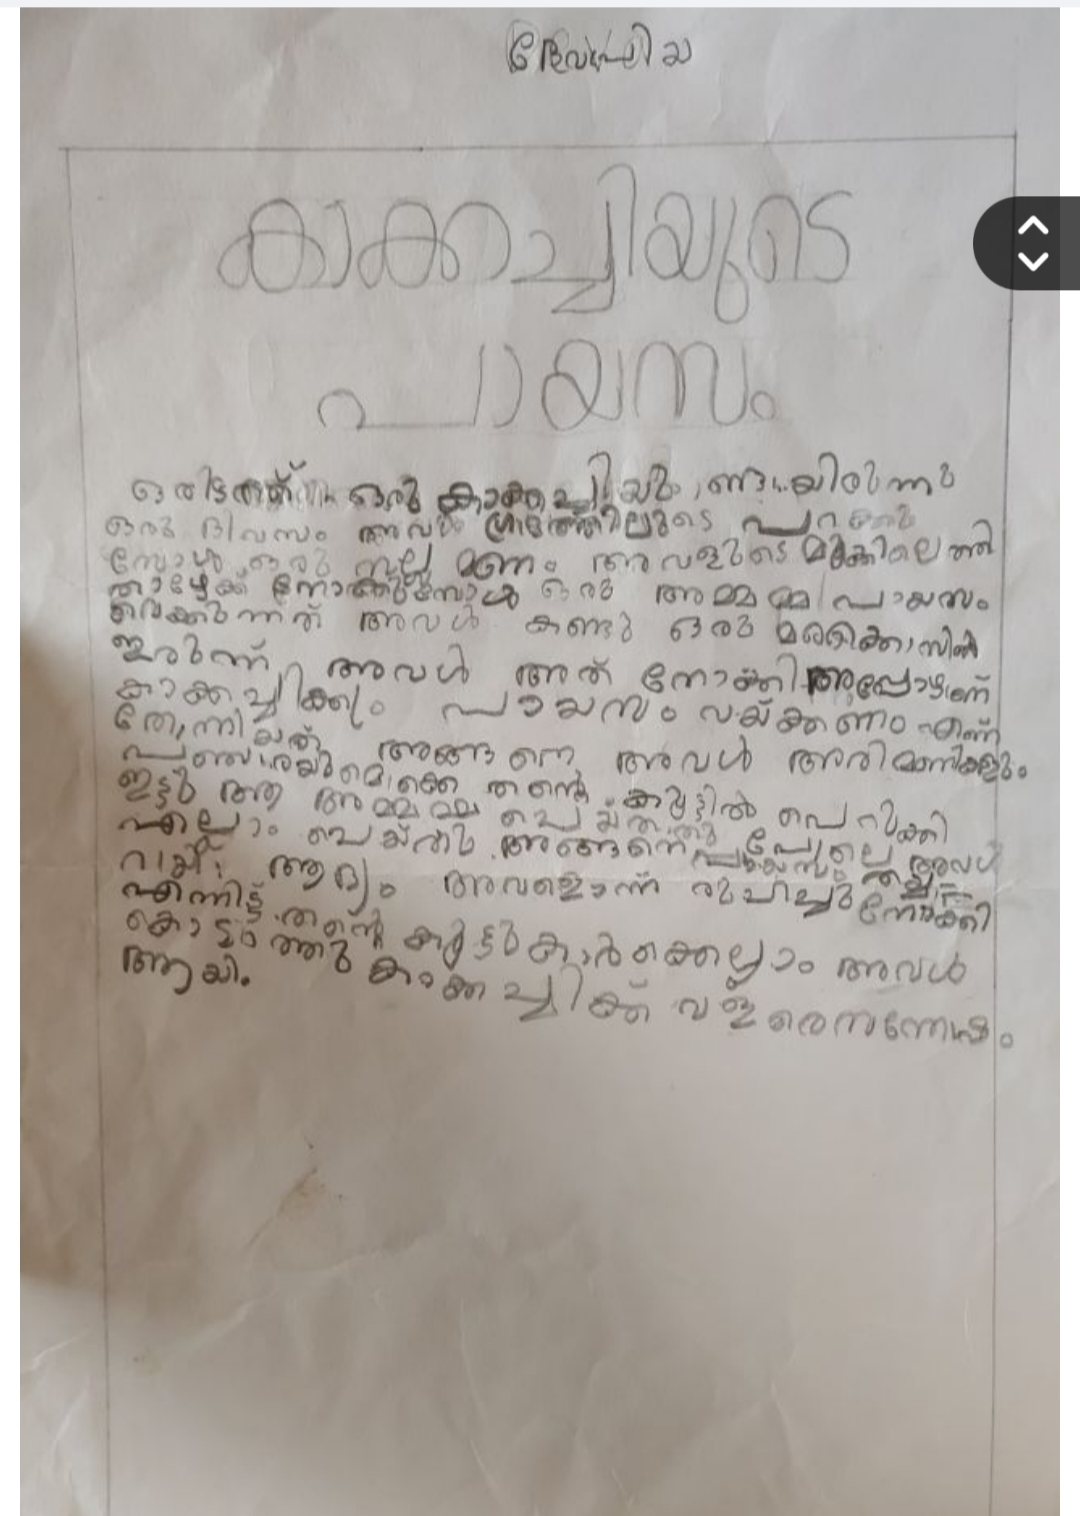 കാക്കച്ചിയുടെ
പായസം
ഒരിടത്ത് ഒരു കാക്കച്ചിയും ണ്ടായിരുന്നു
ഒരു ദിവസം അവൾ പറക്കു
മ്പോൾ ഒരു നല്ല മണം അവളുടെ മൂക്കിലെത്തി
താഴേക്ക് നോക്കുമ്പോൾ ഒരു അമ്മമ്മ പായസം
വെക്കുന്നത് അവൾ കണ്ടു ഒരു മരക്കൊമ്പിൽ
ഇരുന്ന് അവൾ അത് നോക്കി അപ്പോഴാണ്
കാക്കച്ചിക്കും പായസം വയ്ക്കണം എന്ന്
തോന്നിയത് അങ്ങനെ അവൾ അരിമണികളും
പഞ്ചസാരയുമൊക്കെ തന്റെ കൂട്ടിൽ പെറുക്കി
ഇട്ടു ആ അമ്മമ്മ ചെയ്തതു പോലെ അവൾ
എല്ലാം ചെയ്തു അങ്ങനെ പായസം
റായി. ആദ്യം അവളൊന്ന് രുചിച്ചു നോക്കി
എന്നിട്ട് തന്റെ കൂട്ടുകാർക്കെല്ലാം അവൾ
കൊടുത്തു കാക്കച്ചിക്ക് വളരെസന്തോഷം
ആയി.